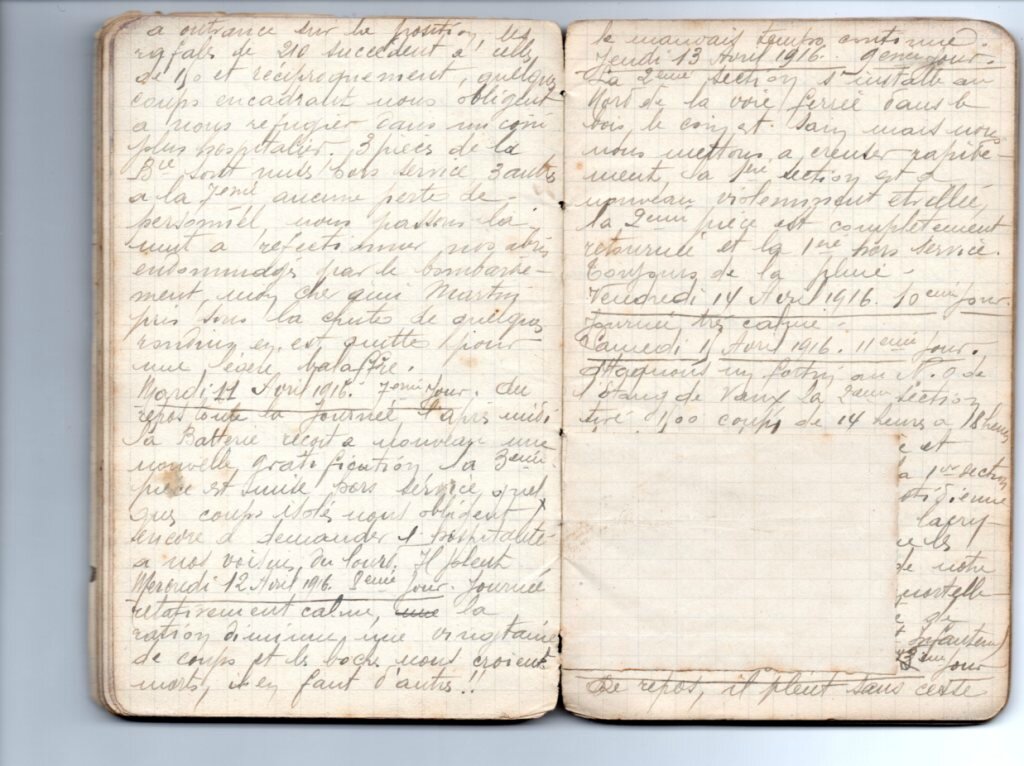 a outrance sur la position, les
rafales de 210 succèdent a celles
de 150 et réciproquement, quelques
coups encadrant nous obligent
a nous refugier dans un coin
plus hospitalier. 3 pièces de la
Bie sont mises hors service 3 autres
a la 7eme aucune perte de
personnel, nous passons la
nuit a refectionner nos abris
endommagés par le bombarde-
ment, mon cher ami Martin
pris sous la chute de quelques
rondins en est quitte pour
une légère balafre.
Mardi 11 Avril 1916. 7eme Jour. du
repos toute la journée l'après midi
la Batterie reçoit a nouveau une
nouvelle gratification, la 3eme
pièce est mise hors service, quel
ques coups isolés nous obligent
encore a demander l'hospitalité
a nos voisins du lourd. Il pleut
Mercredi 12 Avril 1916. 8eme Jour. Journée
relativement calme, une la
ration diminue, une vingtaine
de coups et les boches nous croient
morts, il en faut d'autres !!
le mauvais temps continue.
Jeudi 13 Avril 1916. 9eme jour.
La 2eme section s'installe au
Nord de la voie ferrée dans le
bois, le coin est sain mais nous
nous mettons a creuser rapide-
ment, la 1ere section est a
nouveau violemment étrillée,
la 2eme pièce est complètement
retournée et la 1ere hors service.
Toujours de la pluie.
Vendredi 14 Avril 1916. 10eme Jour.
Journée très calme.
Samedi 15 Avril 1916. 11eme Jour.
Attaquons un fortin au N.O de
l'Etang de Vaux la 2eme section
tire 1500 coups de 14 heures a 18 heures
et
la 1ere section
otidienne
lacry-
les
de notre
mortelle-

Infanterie
jour
De repos, il pleut sans cesse